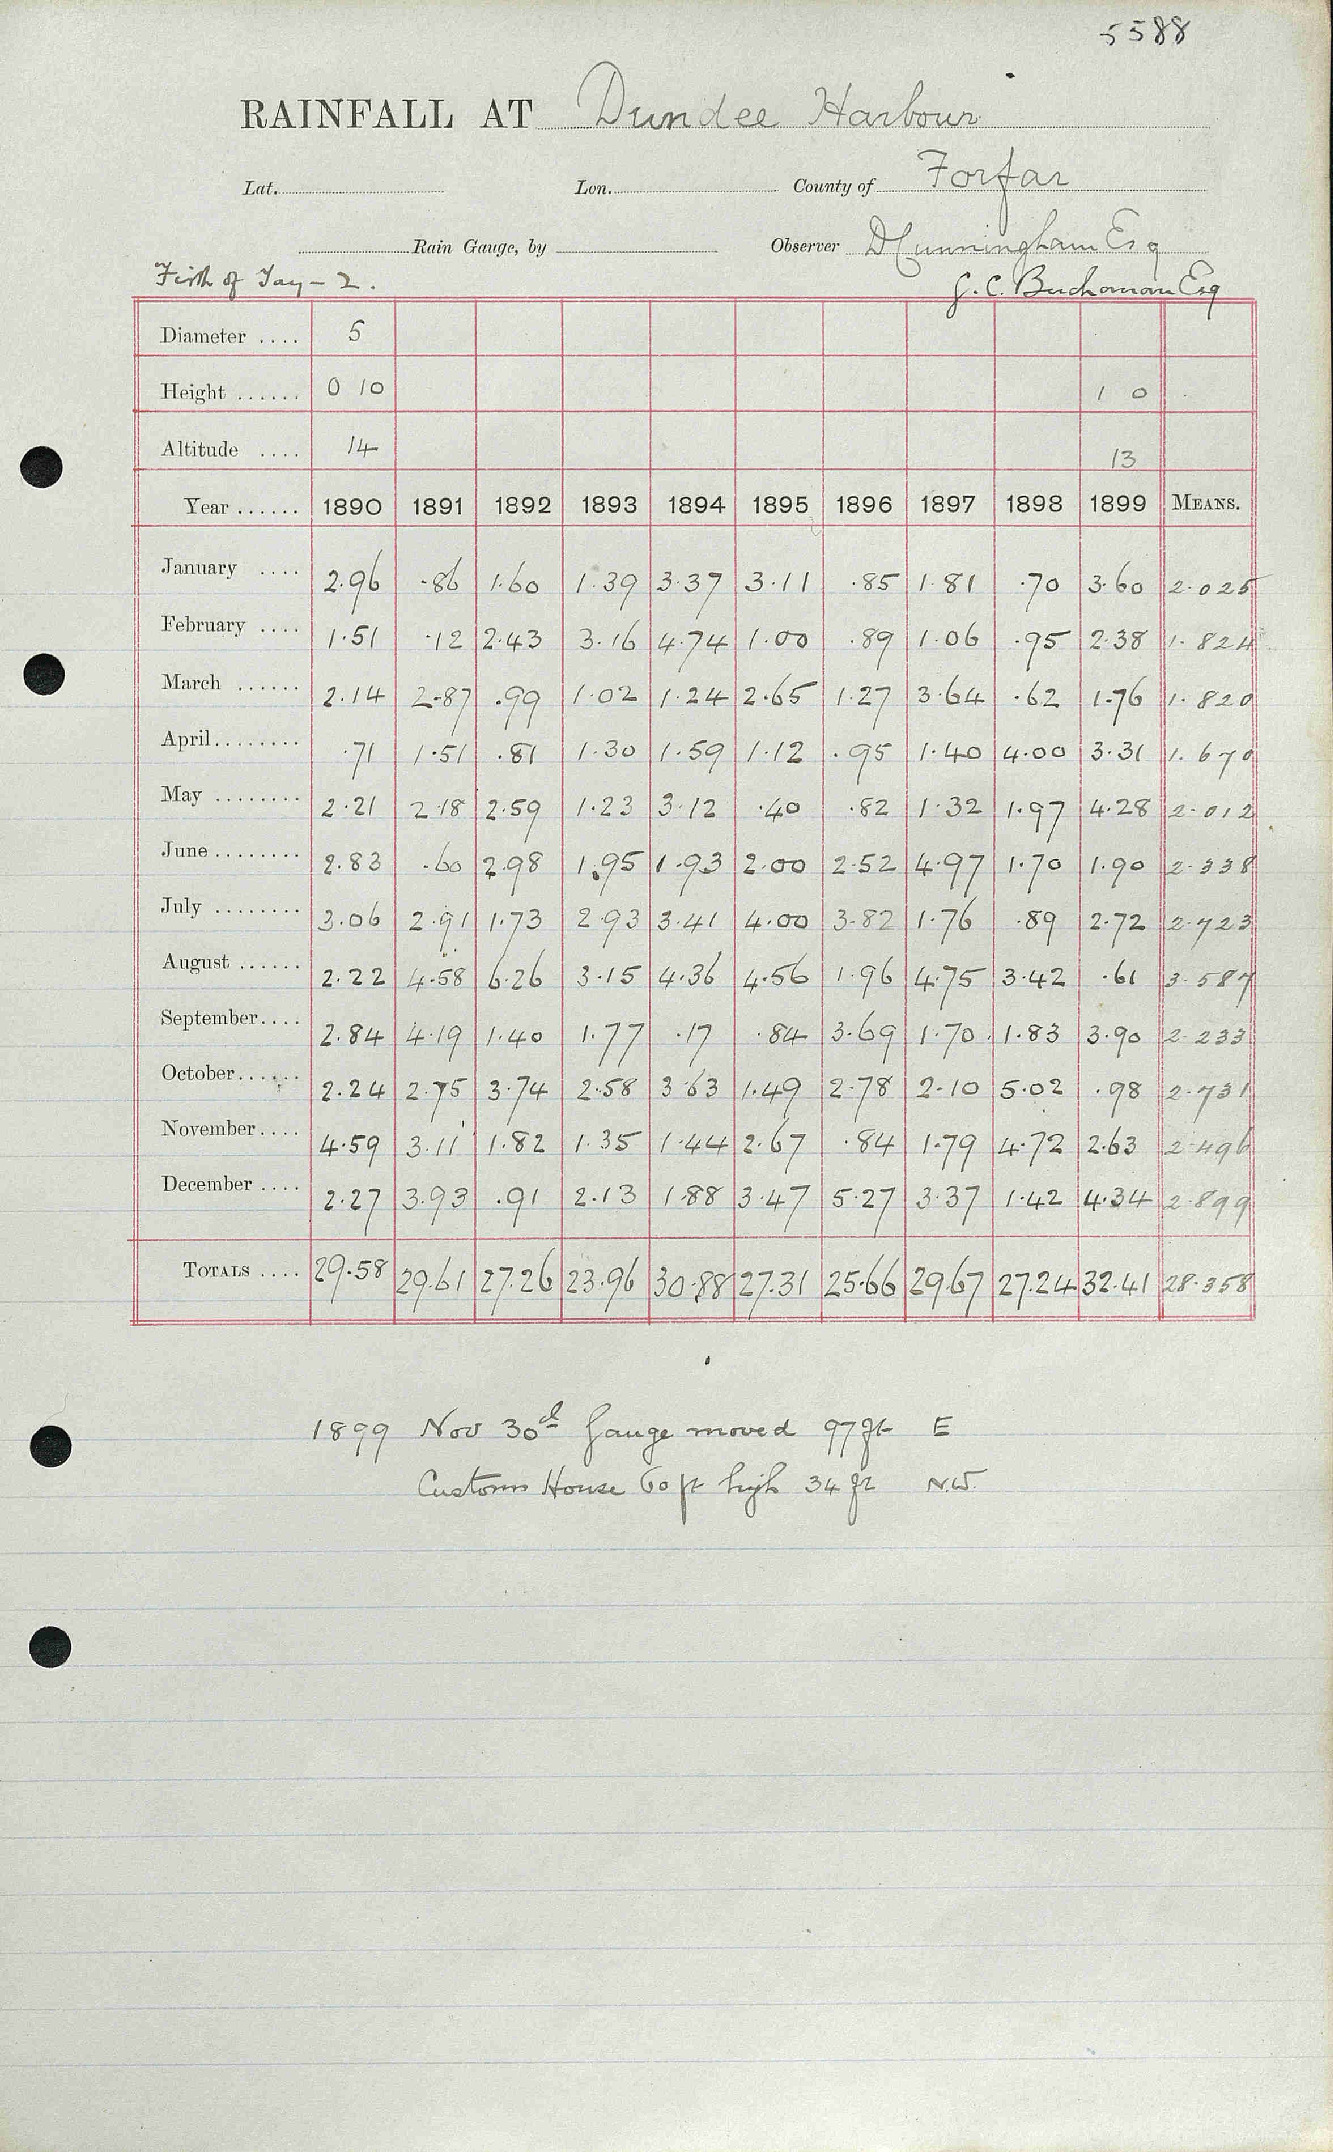 5588
RAINFALL AT Dundee Harbour
Lat. Lon. County of Forfar
Rain Gauge, by Observer D Cunningham Esq
Firth of Tay - 2. G. C. Buchanan Esq
Diameter .... 5
Height ...... 0 10 1 0
Altitude .... 14 13
Year ...... 1890 1891 1892 1893 1894 1895 1896 1897 1898 1899 MEANS.
January .... 2.96 .86 1.60 1.39 3.37 3.11 .85 1.81 .70 3.60 2.025
February .... 1.51 .12 2.43 3.16 4.74 1.00 .89 1.06 .95 2.38 1.824
March ...... 2.14 2.87 .99 1.02 1.24 2.65 1.27 3.64 .62 1.76 1.820
April ........ .71 1.51 .81 1.30 1.59 1.12 .95 1.40 4.00 3.31 1.670
May ........ 2.21 2.18 2.59 1.23 3.12 .40 .82 1.32 1.97 4.28 2.012
June ........ 2.83 .60 2.98 1.95 1.93 2.00 2.52 4.97 1.70 1.90 2.338
July ........ 3.06 2.91 1.73 2.93 3.41 4.00 3.82 1.76 .89 2.72 2.723
August ...... 2.22 4.58 6.26 3.15 4.36 4.56 1.96 4.75 3.42 .61 3.587
September .... 2.84 4.19 1.40 1.77 .17 .84 3.69 1.70 1.83 3.90 2.233
October ...... 2.24 2.75 3.74 2.58 3.63 1.49 2.78 2.10 5.02 .98 2.731
November .... 4.59 3.11 1.82 1.35 1.44 2.67 .84 1.79 4.72 2.63 2.496
December .... 2.27 3.93 .91 2.13 1.88 3.47 5.27 3.37 1.42 4.34 2.899
TOTALS .... 29.58 29.61 27.26 23.96 30.88 27.31 25.66 29.67 27.24 32.41 28.358
1899 Nov 30th Gauge moved 97 ft E
Customs House 60 ft high 34 ft N.W.